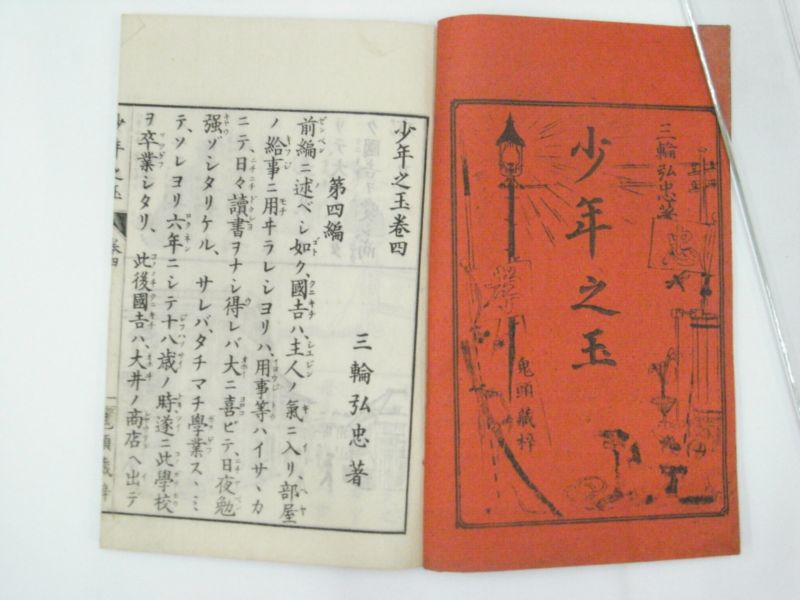 三輪弘忠著
少年之玉
鬼頭藏梓
忠
四
少年之玉卷四
第四編
三輪弘忠著
前編ニ述ベシ如ク、國吉ハ、主人ノ氣ニ入リ、部屋
ノ給事ニ用ヰラレシヨリハ、用事等ハイサヽカ
ニテ、日々讀書ヲナシ得レバ大ニ喜ビテ、日夜勉
强ゾシタリケル、サレバ、タチマチ學業スヽミ
テ、ソレヨリ六年ニシテ十八歳ノ時遂ニ此學校
ヲ卒業シタリ、此後國吉ハ、大井ノ商店ヘ出デ
少年之玉
卷四
鬼頭藏梓